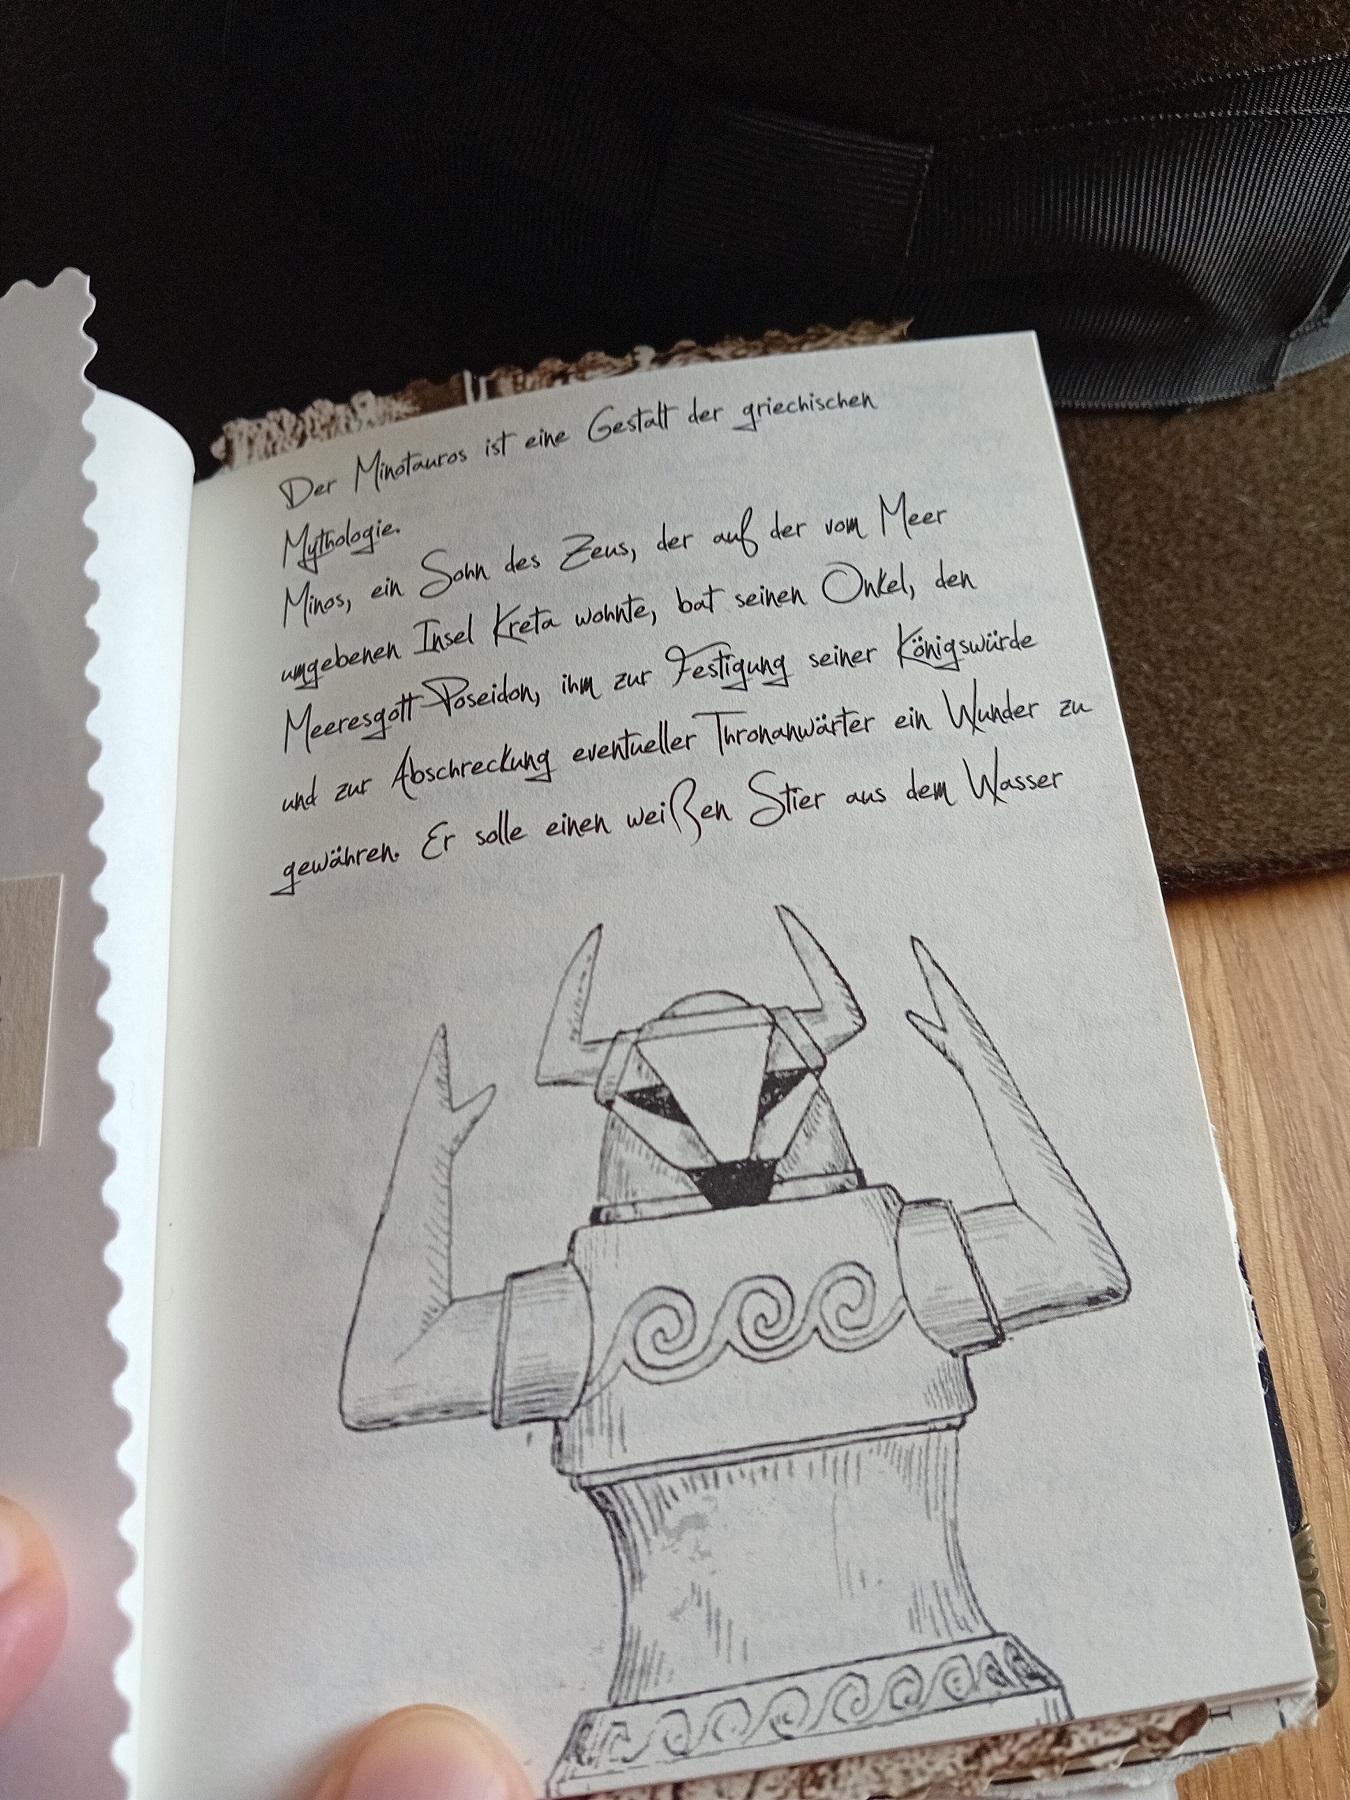 Der Minotauros ist eine Gestalt der griechischen
Mythologie.
Minos, ein Sohn des Zeus, der auf der vom Meer
umgebenen Insel Kreta wohnte, bat seinen Onkel, den
Meeresgott Poseidon, ihm zur Festigung seiner Königswürde
und zur Abschreckung eventueller Thronanwärter ein Wunder zu
gewähren. Er solle einen weißen Stier aus dem Wasser